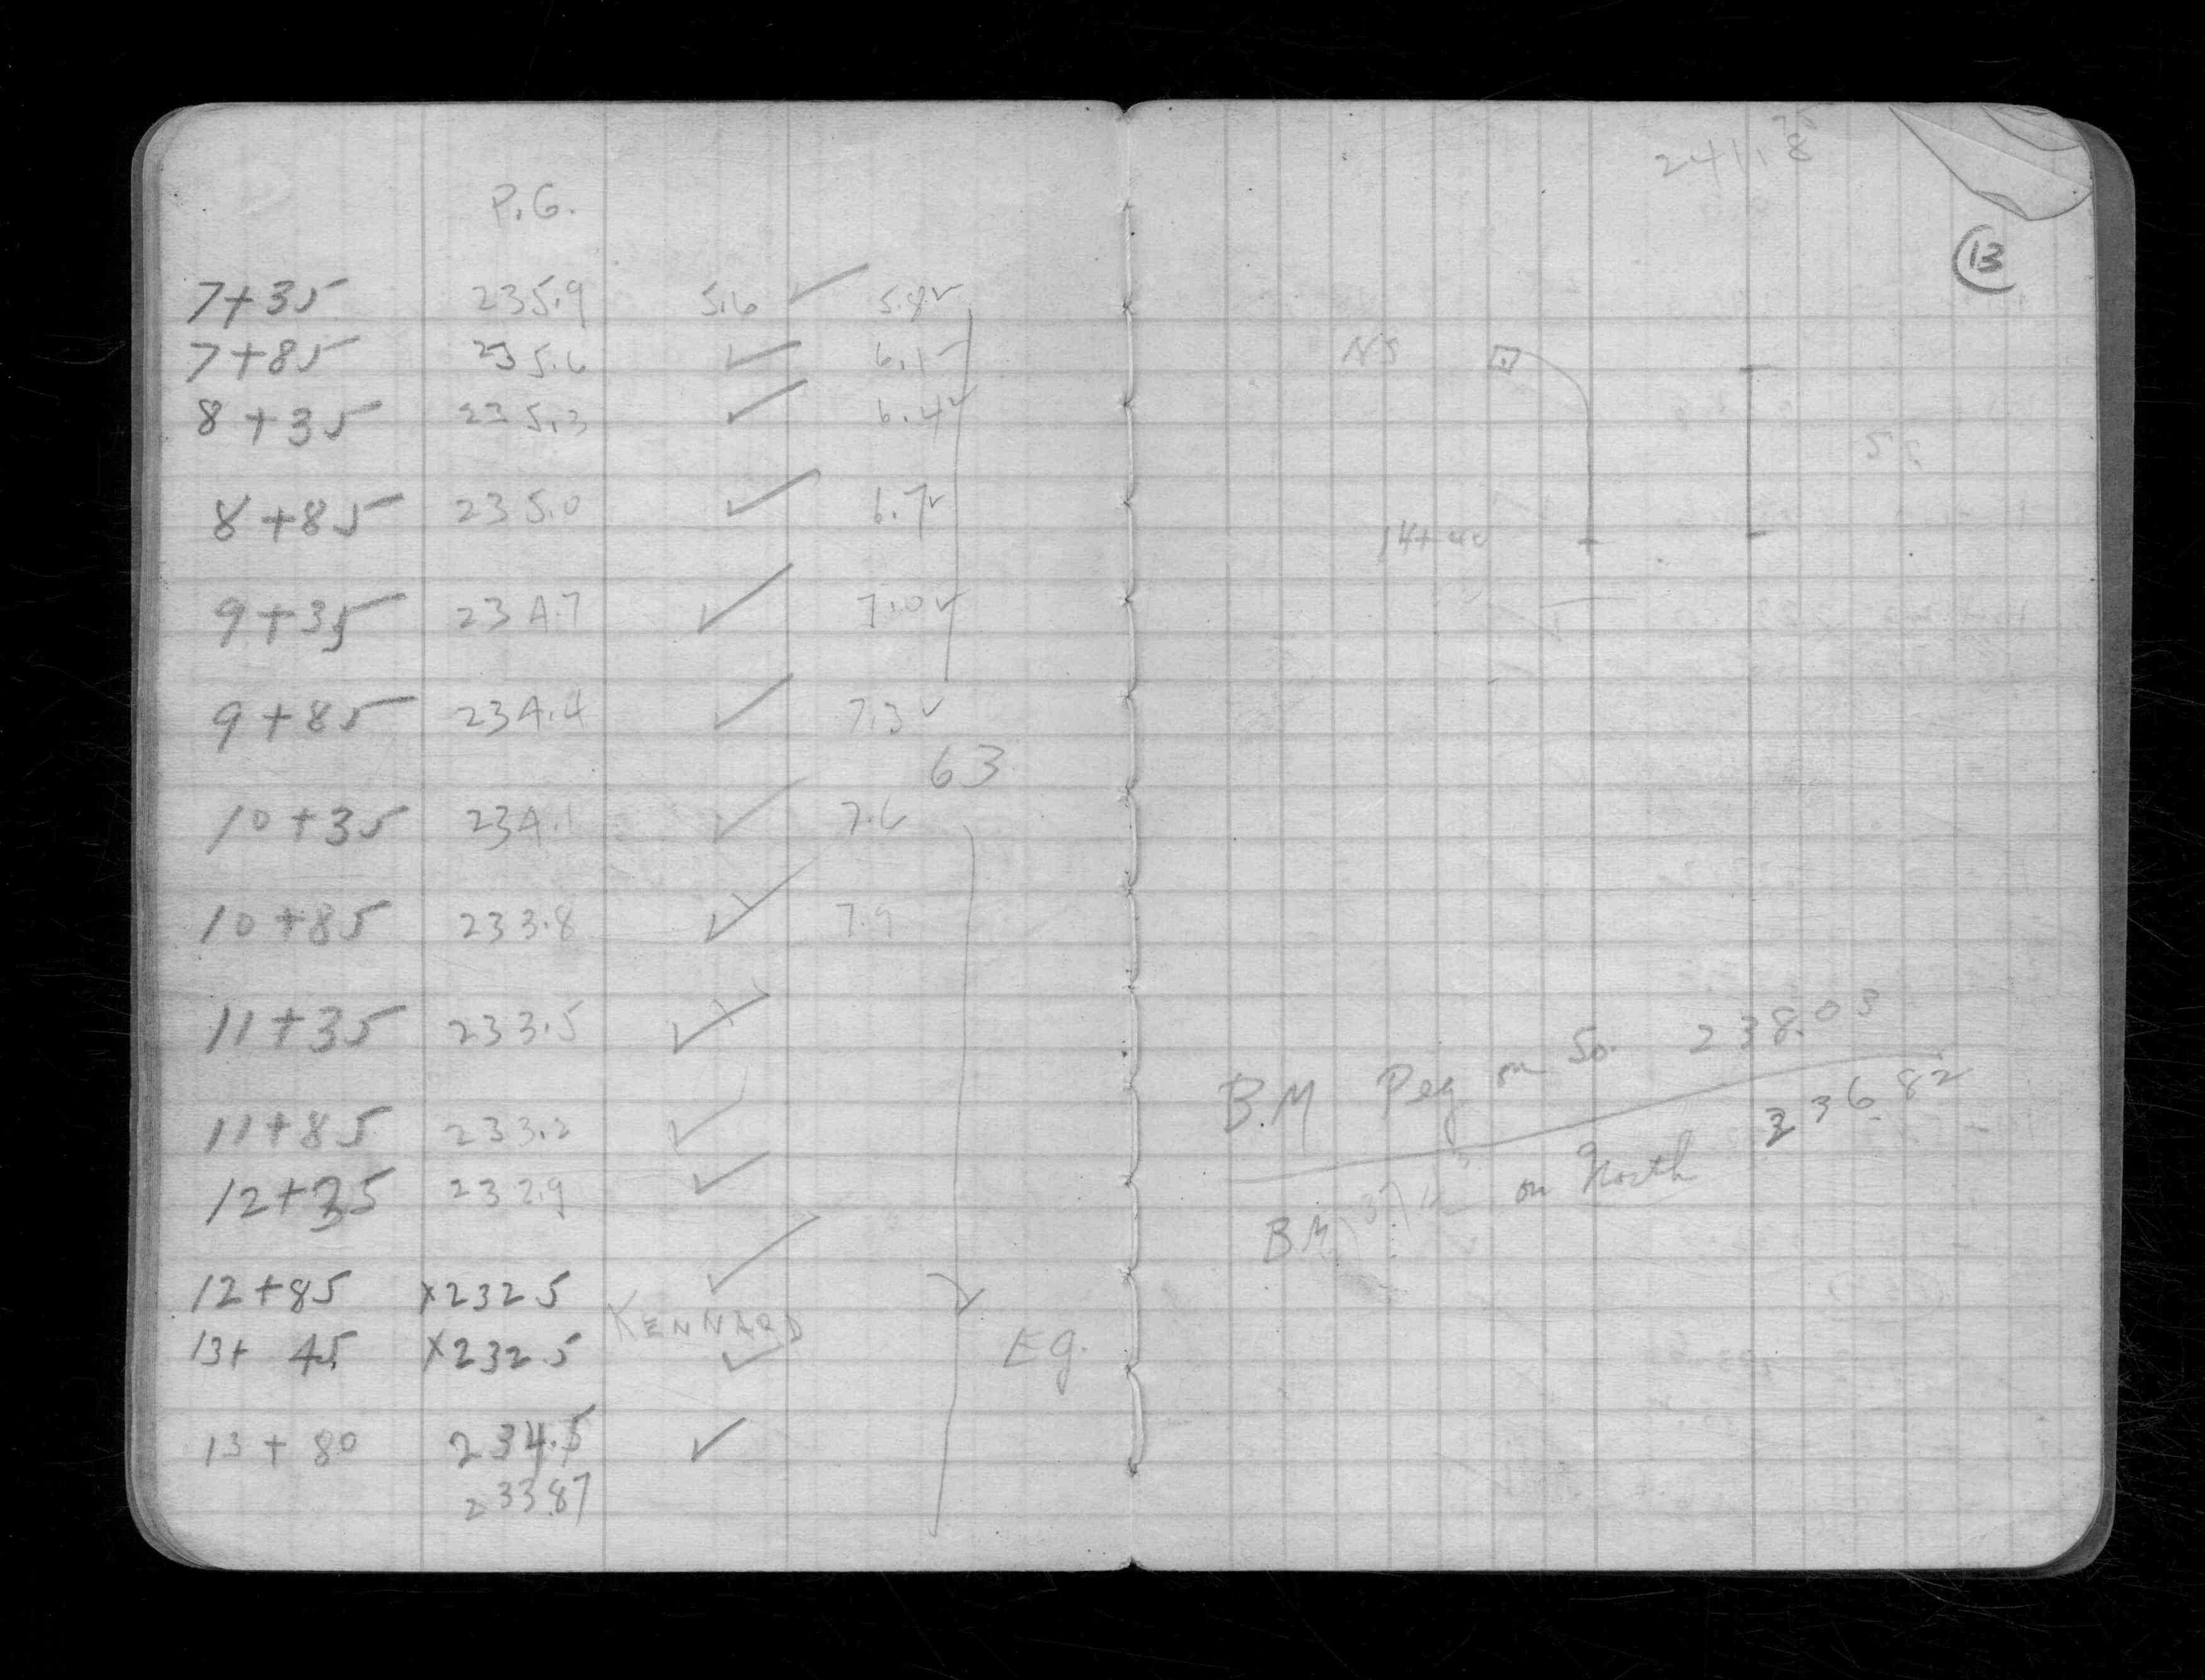 P.G.
7+35 235.9 5.6 ✓ 5.8 ✓
7+85 235.6 ✓ 6.1 ✓
8+35 235.3 ✓ 6.4 ✓
8+85 235.0 ✓ 6.7 ✓
9+35 234.7 ✓ 7.0 ✓
9+85 234.4 ✓ 7.3 ✓
63
10+35 234.1 ✓ 7.6
10+85 233.8 ✓ 7.9
11+35 233.5 ✓
11+85 233.2 ✓
12+35 232.9 ✓
12+85 x232 5 ✓
KENNARD
13+ 45 x232 5 ✓
Eg.
13+80 234.5 ✓
233.87
241.
13
NS
14+40
B.M Peg on So. 238.03
BM on North 236.82